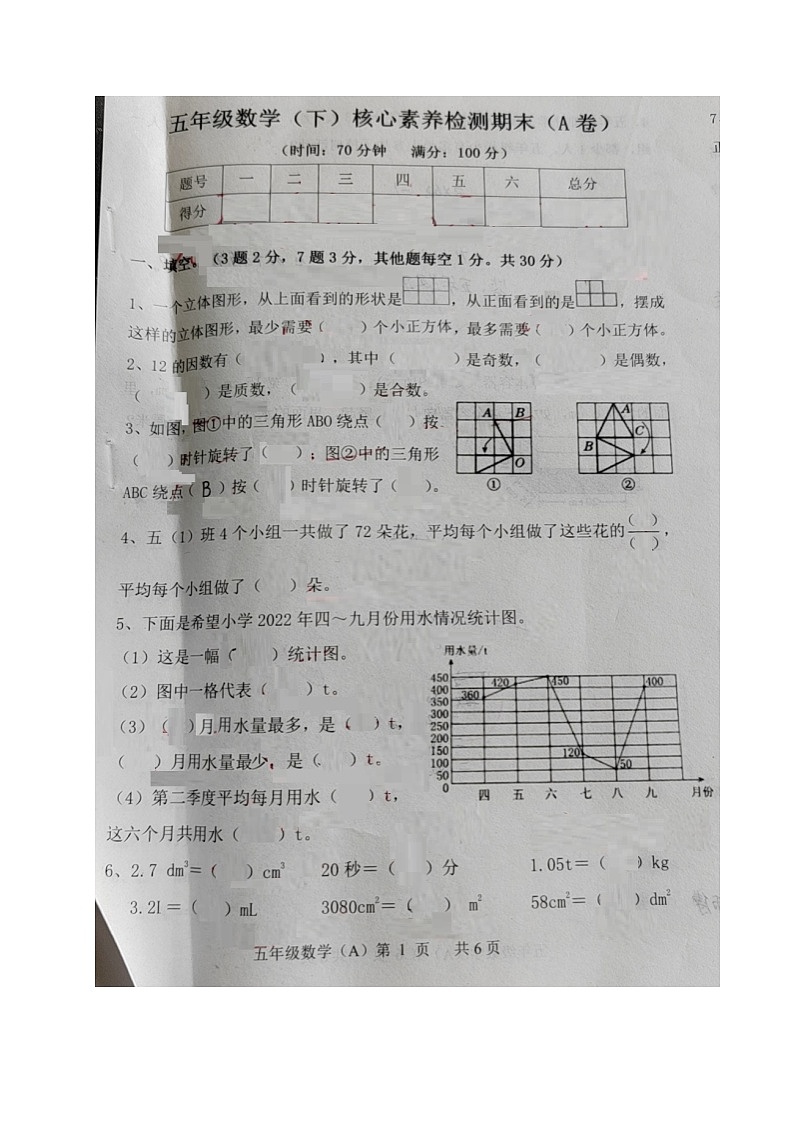 五年级数学（下）核心素养检测期末（A 卷）
（时间：70 分钟 满分：100 分）
题号 一 二 三 四 五 六 总分
得分
一、填空。（3 题 2 分，7 题 3 分，其他题每空 1 分。共 30 分）
1、一个立体图形，从上面看到的形状是 ，从正面看到的是 ，摆成
这样的立体图形，最少需要（ ）个小正方体，最多需要（ ）个小正方体。
2、12 的因数有（ ），其中（ ）是奇数，（ ）是偶数，
（ ）是质数，（ ）是合数。
3、如图，图①中的三角形 ABO 绕点（ ）按
（ ）时针旋转了（ ）；图②中的三角形
ABC 绕点（ B ）按（ ）时针旋转了（ ）。
A B O ①
A B C ②
4、五（1）班 4 个小组一共做了 72 朵花，平均每个小组做了这些花的（ ）/（ ），
平均每个小组做了（ ）朵。
5、下面是希望小学 2022 年四～九月份用水情况统计图。
（1）这是一幅（ ）统计图。
（2）图中一格代表（ ）t。
（3）（ ）月用水量最多，是（ ）t，
（ ）月用水量最少，是（ ）t。
（4）第二季度平均每月用水（ ）t，
这六个月共用水（ ）t。
用水量/t
450
400
350
300
250
200
150
100
50
0
360 420 450 120 50 400
四 五 六 七 八 九 月份
6、2.7 dm³=（ ）cm³ 20 秒=（ ）分 1.05t=（ ）kg
3.2l =（ ）mL 3080cm²=（ ） m² 58cm²=（ ）dm²
五年级数学（A）第 1 页 共 6 页